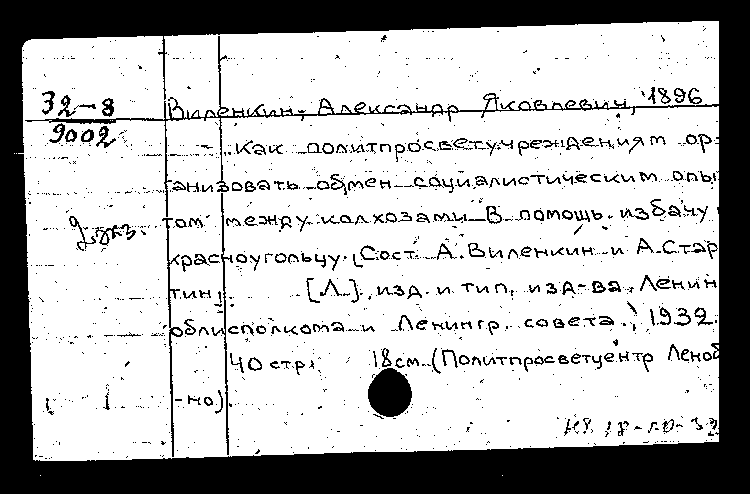 32-8
9002
Виленкин, Александр Яковлевич, 1896
Как политпросветучреждениям ор-
ганизовать обмен социалистическим опы
том между колхозами. В помощь избачу
красноугольцу. (Сост. А. Виленкин и А. Стар
тин). [Л.], изд. и тип. изд-ва Ленин
облисполкома и Ленингр. совета, 1932.
40 стр. 18 см. (Политпросветцентр Леноб
-но).